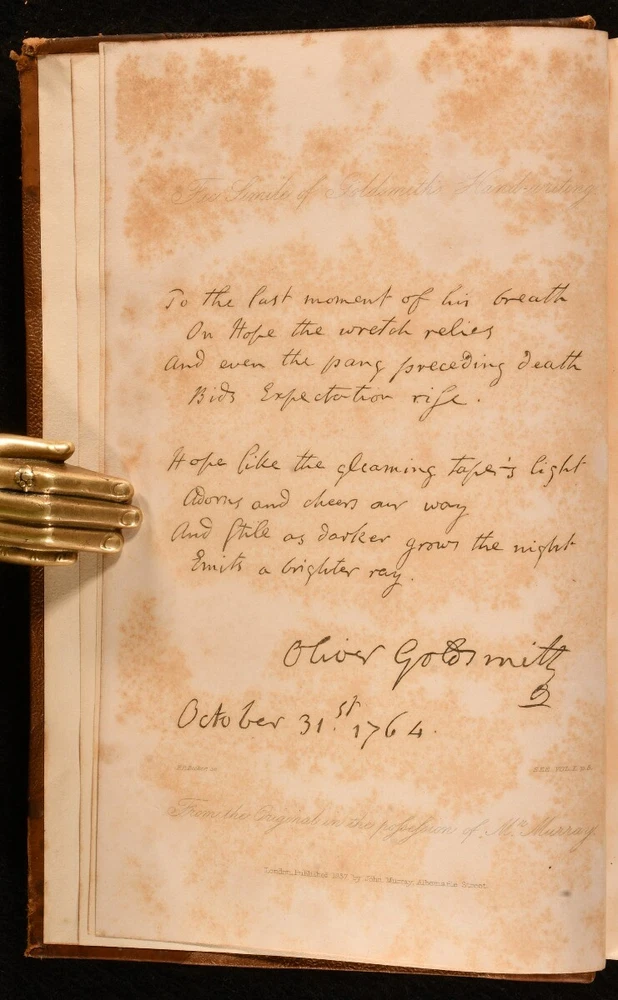 Fac Simile of Goldsmith's Hand-writing
To the last moment of his breath
On Hope the wretch relies
And even the pang preceding death
Bids Expectation rise.
Hope like the gleaming taper's light
Adorns and cheers our way
And Stile as darker grows the night
Emits a brighter ray.
Oliver Goldsmith
October 31.st 1764.
SEE VOL.
From the Original in the possession of Mr. Murray.
London, Published 1837, by John Murray, Albemarle Street.